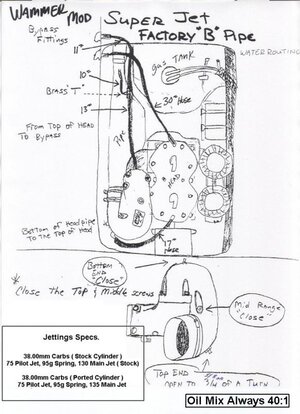 WAMMER MOD
SUPER JET
FACTORY "B" PIPE
WATER ROUTING
Bypass
Fittings
11"
10"
Gas TANK
Brass "T"
13"
30" Hose
From Top of HEAD
To Bypass
Pipe
HEAD
Bottom of Headpipe
To The Top of Head
17"
Hose
Bottom
END
"Close"
* Close the Top & Middle screws
Mid Range
"Close"
Top END
open to 3/4 of a Turn
Jettings Specs.
38.00mm Carbs ( Stock Cylinder )
75 Pilot Jet, 95g Spring, 130 Main Jet ( Stock)
38.00mm Carbs ( Ported Cylinder )
75 Pilot Jet, 95g Spring, 135 Main Jet
Oil Mix Always 40:1